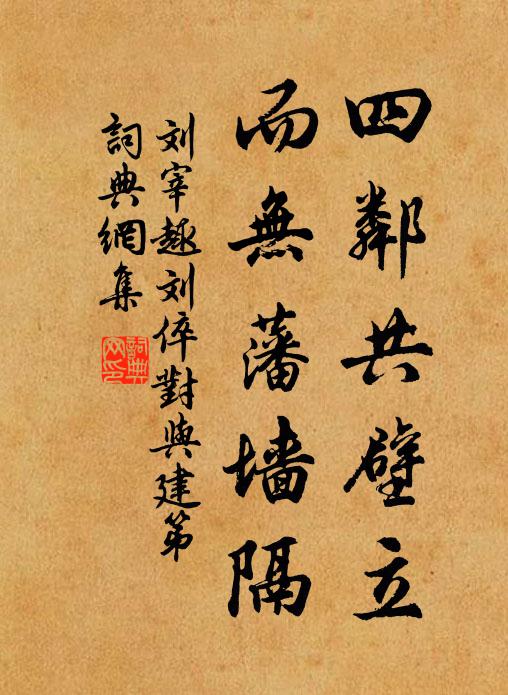 四鄰共壁立
而無藩墙隔
刘宰趣刘倅對與建第
詞典網集
詞典網印